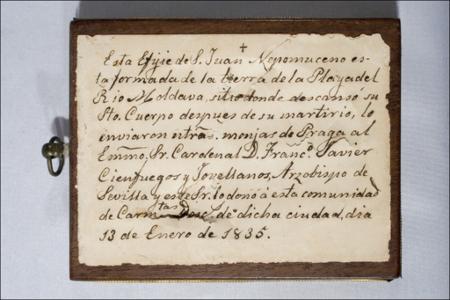 ✝
Esta Efijie de S. Juan Nepomuceno es-
ta formada de la tierra de la Playa del
Rio Moldava, sitio donde descansó su
Sto. Cuerpo despues de su martirio, lo
enviaron ntrâs. monjas de Praga al
Emmo, Sr. Cardenal D. Francº. Javier
Cienfuegos y Jovellanos, Arzobispo de
Sevilla y este Sr. lo donó á esta comunidad
de Carmtas Desc. de dicha ciudad, dia
13 de Enero de 1835.